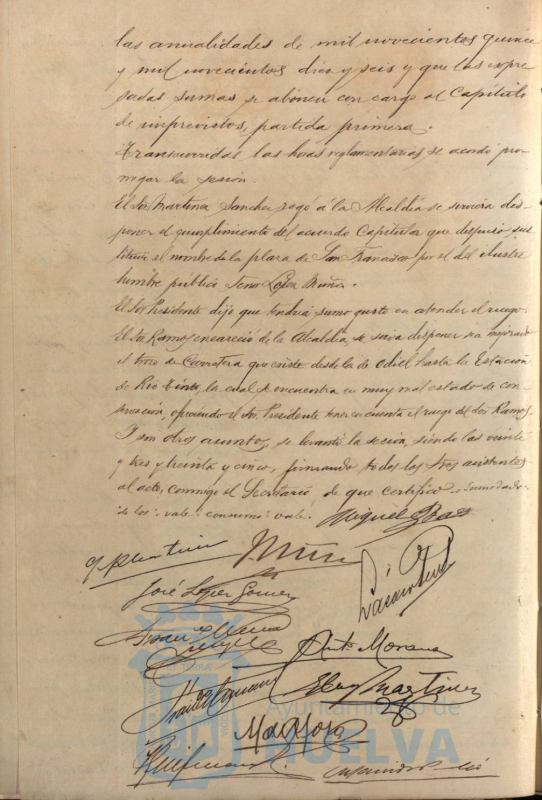 las anualidades de mil novecientos quince
y mil novecientos diez y seis y que las expre
sadas sumas se abonen con cargo al Capítulo
de imprevistos, partida primera.
Transcurridas las horas reglamentarias se acordó pro-
rrogar la sesión.
El Sor Martinez Sanchez rogó á la Alcaldía se serviera dis-
poner el cumplimiento del acuerdo Capitular que dispuso sus
tituir el nombre de la plaza de San Francisco por el del ilustre
hombre público Señor López Muñoz.
El Sor Presidente dijo que tendría sumo gusto en atender el ruego.
El Sor Ramos encareció de la Alcaldía, se sirva disponer sea mejorado
el trozo de Carretera que existe desde la de Odiel hasta la Estación
de Rio Tinto, la cual se encuentra en muy mal estado de con-
servación, ofreciendo el Sr. Presidente tener en cuenta el ruego del Sor Ramos.
Y sin otros asuntos, se levantó la sesión, siendo las veinte
y tres y treinta y cinco, firmando todos los Sres asistentes
al acto, conmigo el Secretario, de que certifico
de los vale consumó vale. Miguel
José López Gomez
Juan
Antº Moreno
Martinez
Ayuntamiento de
HUELVA